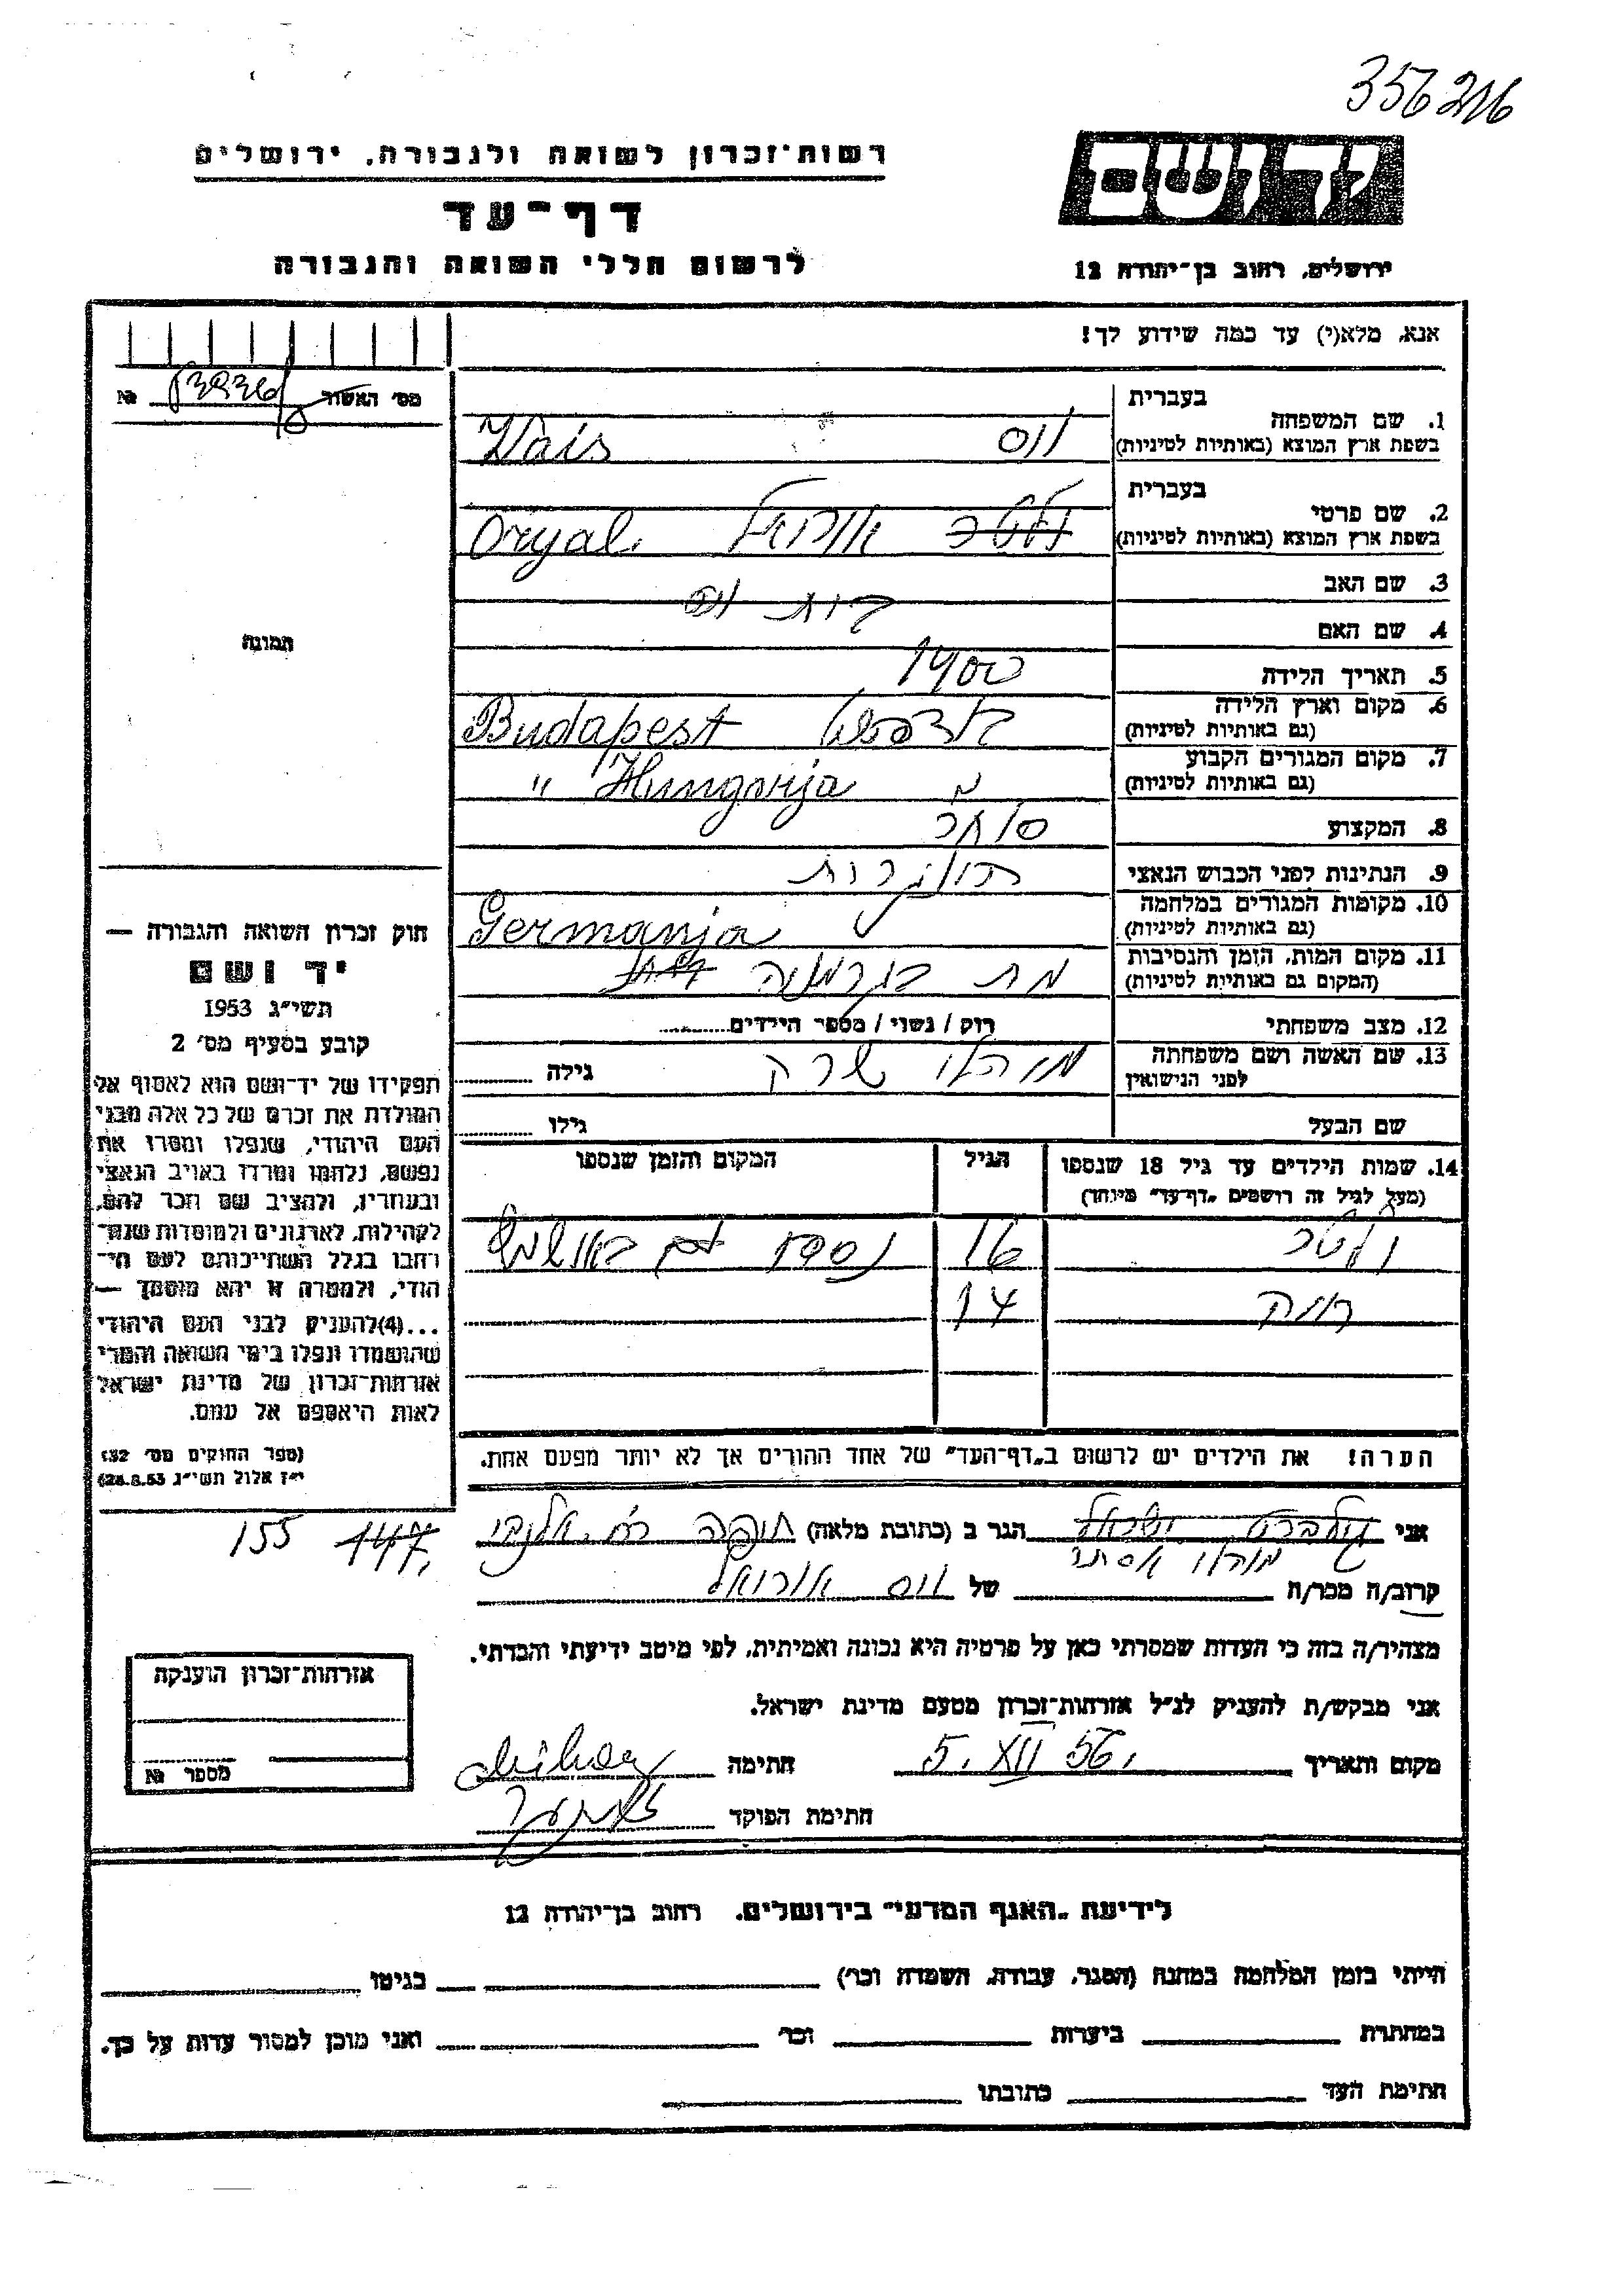 356216
רשות־זכרון לשואה ולגבורה, ירושלים
דף־עד
לרשום חללי השואה והגבורה
יד ושם
ירושלים, רחוב בן־יהודה 12
אנא, מלא(י) עד כמה שידוע לך!
מס' האשור №
1. שם המשפחה בעברית
בשפת ארץ המוצא (באותיות לטיניות)
וייס Vais
2. שם פרטי בעברית
בשפת ארץ המוצא (באותיות לטיניות)
Oryal
3. שם האב
4. שם האם
5. תאריך הלידה 1900
6. מקום וארץ הלידה
(גם באותיות לטיניות)
בודפשט Budapest
7. מקום המגורים הקבוע
(גם באותיות לטיניות)
" Hungarija
8. המקצוע סוחר
9. הנתינות לפני הכבוש הנאצי הונגרית
10. מקומות המגורים במלחמה
(גם באותיות לטיניות)
Germanja
11. מקום המות, הזמן והנסיבות
(המקום גם באותיות לטיניות)
מת בגרמניה
12. מצב משפחתי רוק / נשוי / מספר הילדים
13. שם האשה ושם משפחתה
לפני הנישואין
גילה
שם הבעל גילו
14. שמות הילדים עד גיל 18 שנספו הגיל המקום והזמן שנספו
(מעל לגיל זה רושמים „דף־עד" מיוחד)
ולטר 16
14
הערה! את הילדים יש לרשום ב„דף־העד" של אחד ההורים אך לא יותר מפעם אחת.
תמונה
חוק זכרון השואה והגבורה —
יד ושם
תשי״ג 1953
קובע בסעיף מס' 2
תפקידו של יד־ושם הוא לאסוף אל
המולדת את זכרם של כל אלה מבני
העם היהודי, שנפלו ומסרו את
נפשם, נלחמו ומרדו באויב הנאצי
ובעוזריו, ולהציב שם וזכר להם,
לקהילות, לארגונים ולמוסדות שנח־
רבו בגלל השתייכותם לעם הי־
הודי, ולמטרה זו יהא מוסמך —
...(4)להעניק לבני העם היהודי
שהושמדו ונפלו בימי השואה והמרי
אזרחות־זכרון של מדינת ישראל
לאות היאספם אל עמם.
(ספר החוקים מס' 132
י״ז אלול תשי״ג 28.8.53)
אני הגר ב (כתובת מלאה) חיפה רח. אלנבי
147, 155
קרוב/ה מכר/ה של וייס אוריאל
מצהיר/ה בזה כי העדות שמסרתי כאן על פרטיה היא נכונה ואמיתית, לפי מיטב ידיעתי והכרתי.
אני מבקש/ת להעניק לנ״ל אזרחות־זכרון מטעם מדינת ישראל.
מקום ותאריך 5. XII 56. חתימה
חתימת הפוקד
אזרחות־זכרון הוענקה
מספר №
לידיעת „האגף המדעי" בירושלים, רחוב בן־יהודה 12
הייתי בזמן המלחמה במחנה (הסגר, עבודה, השמדה וכו') בגיטו
במחתרת ביערות וכו' ואני מוכן למסור עדות על כך.
חתימת העד כתובתו